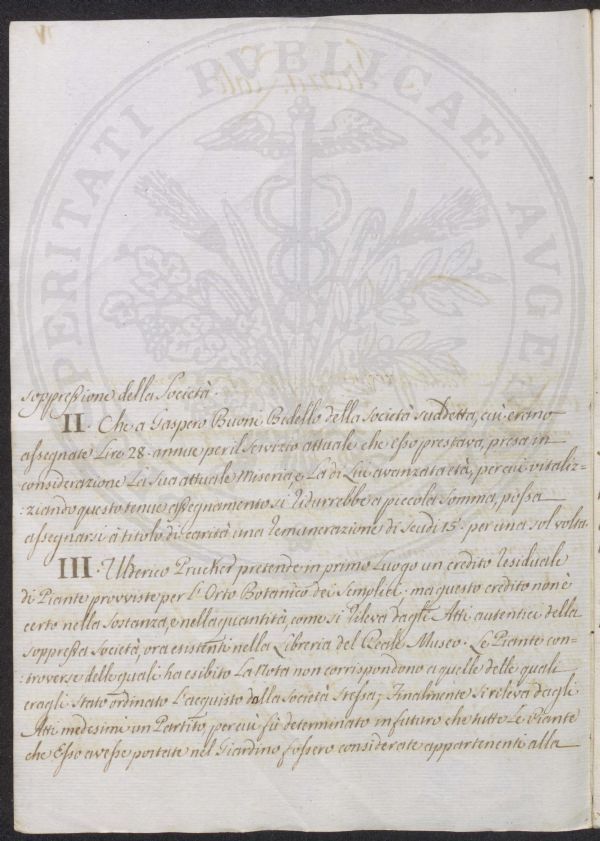 PROSPERITATI PVBLICAE AVGENDAE
soppressione della Società.
II. Che a Gaspero Buoni Bidello della Società suddetta, cui erano
assegnate Lire 28. annue per il servizio attuale che Esso prestava, presa in
considerazione la sua attuale Miseria, e La di Lui avanzata età, per cui vitaliz=
:ziando questo tenue assegnamento si ridurrebbe a piccola somma, possa
assegnarsi à titolo di carità una remunerazione di Scudi 15. per una sol volta.
III. Ulderico Prucker pretende in primo Luogo un credito residuale
di Piante provviste per L'Orto Botanico dei Semplici: ma questo credito non è
certo nella sostanza, e nella quantità, come si rileva dagli Atti autentici della
soppressa Società, ora esistenti nella Libreria del Reale Museo. Le Piante con=
:troverse delle quali ha esibito La Nota non corrispondono a quelle delle quali
eragli stato ordinato L'acquisto dalla Società stessa; Finalmente si rileva dagli
Atti medesimi un Partito, per cui fù determinato in futuro che tutte Le Piante
che Esso avesse portate nel Giardino fossero considerate appartenenti alla